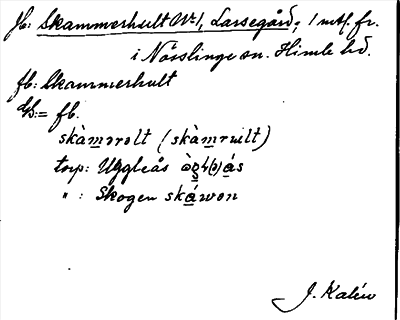 Jb: Skammerhult Nr 1, Larsegård; 1 mtl. fr.
i Nösslinge sn. Himle hd.
fb: Skammerhult
Us:= fb.
skàmərəlt (skàmrult)
torp: Uggleås
" : Skogen skáwən
J. Kalén